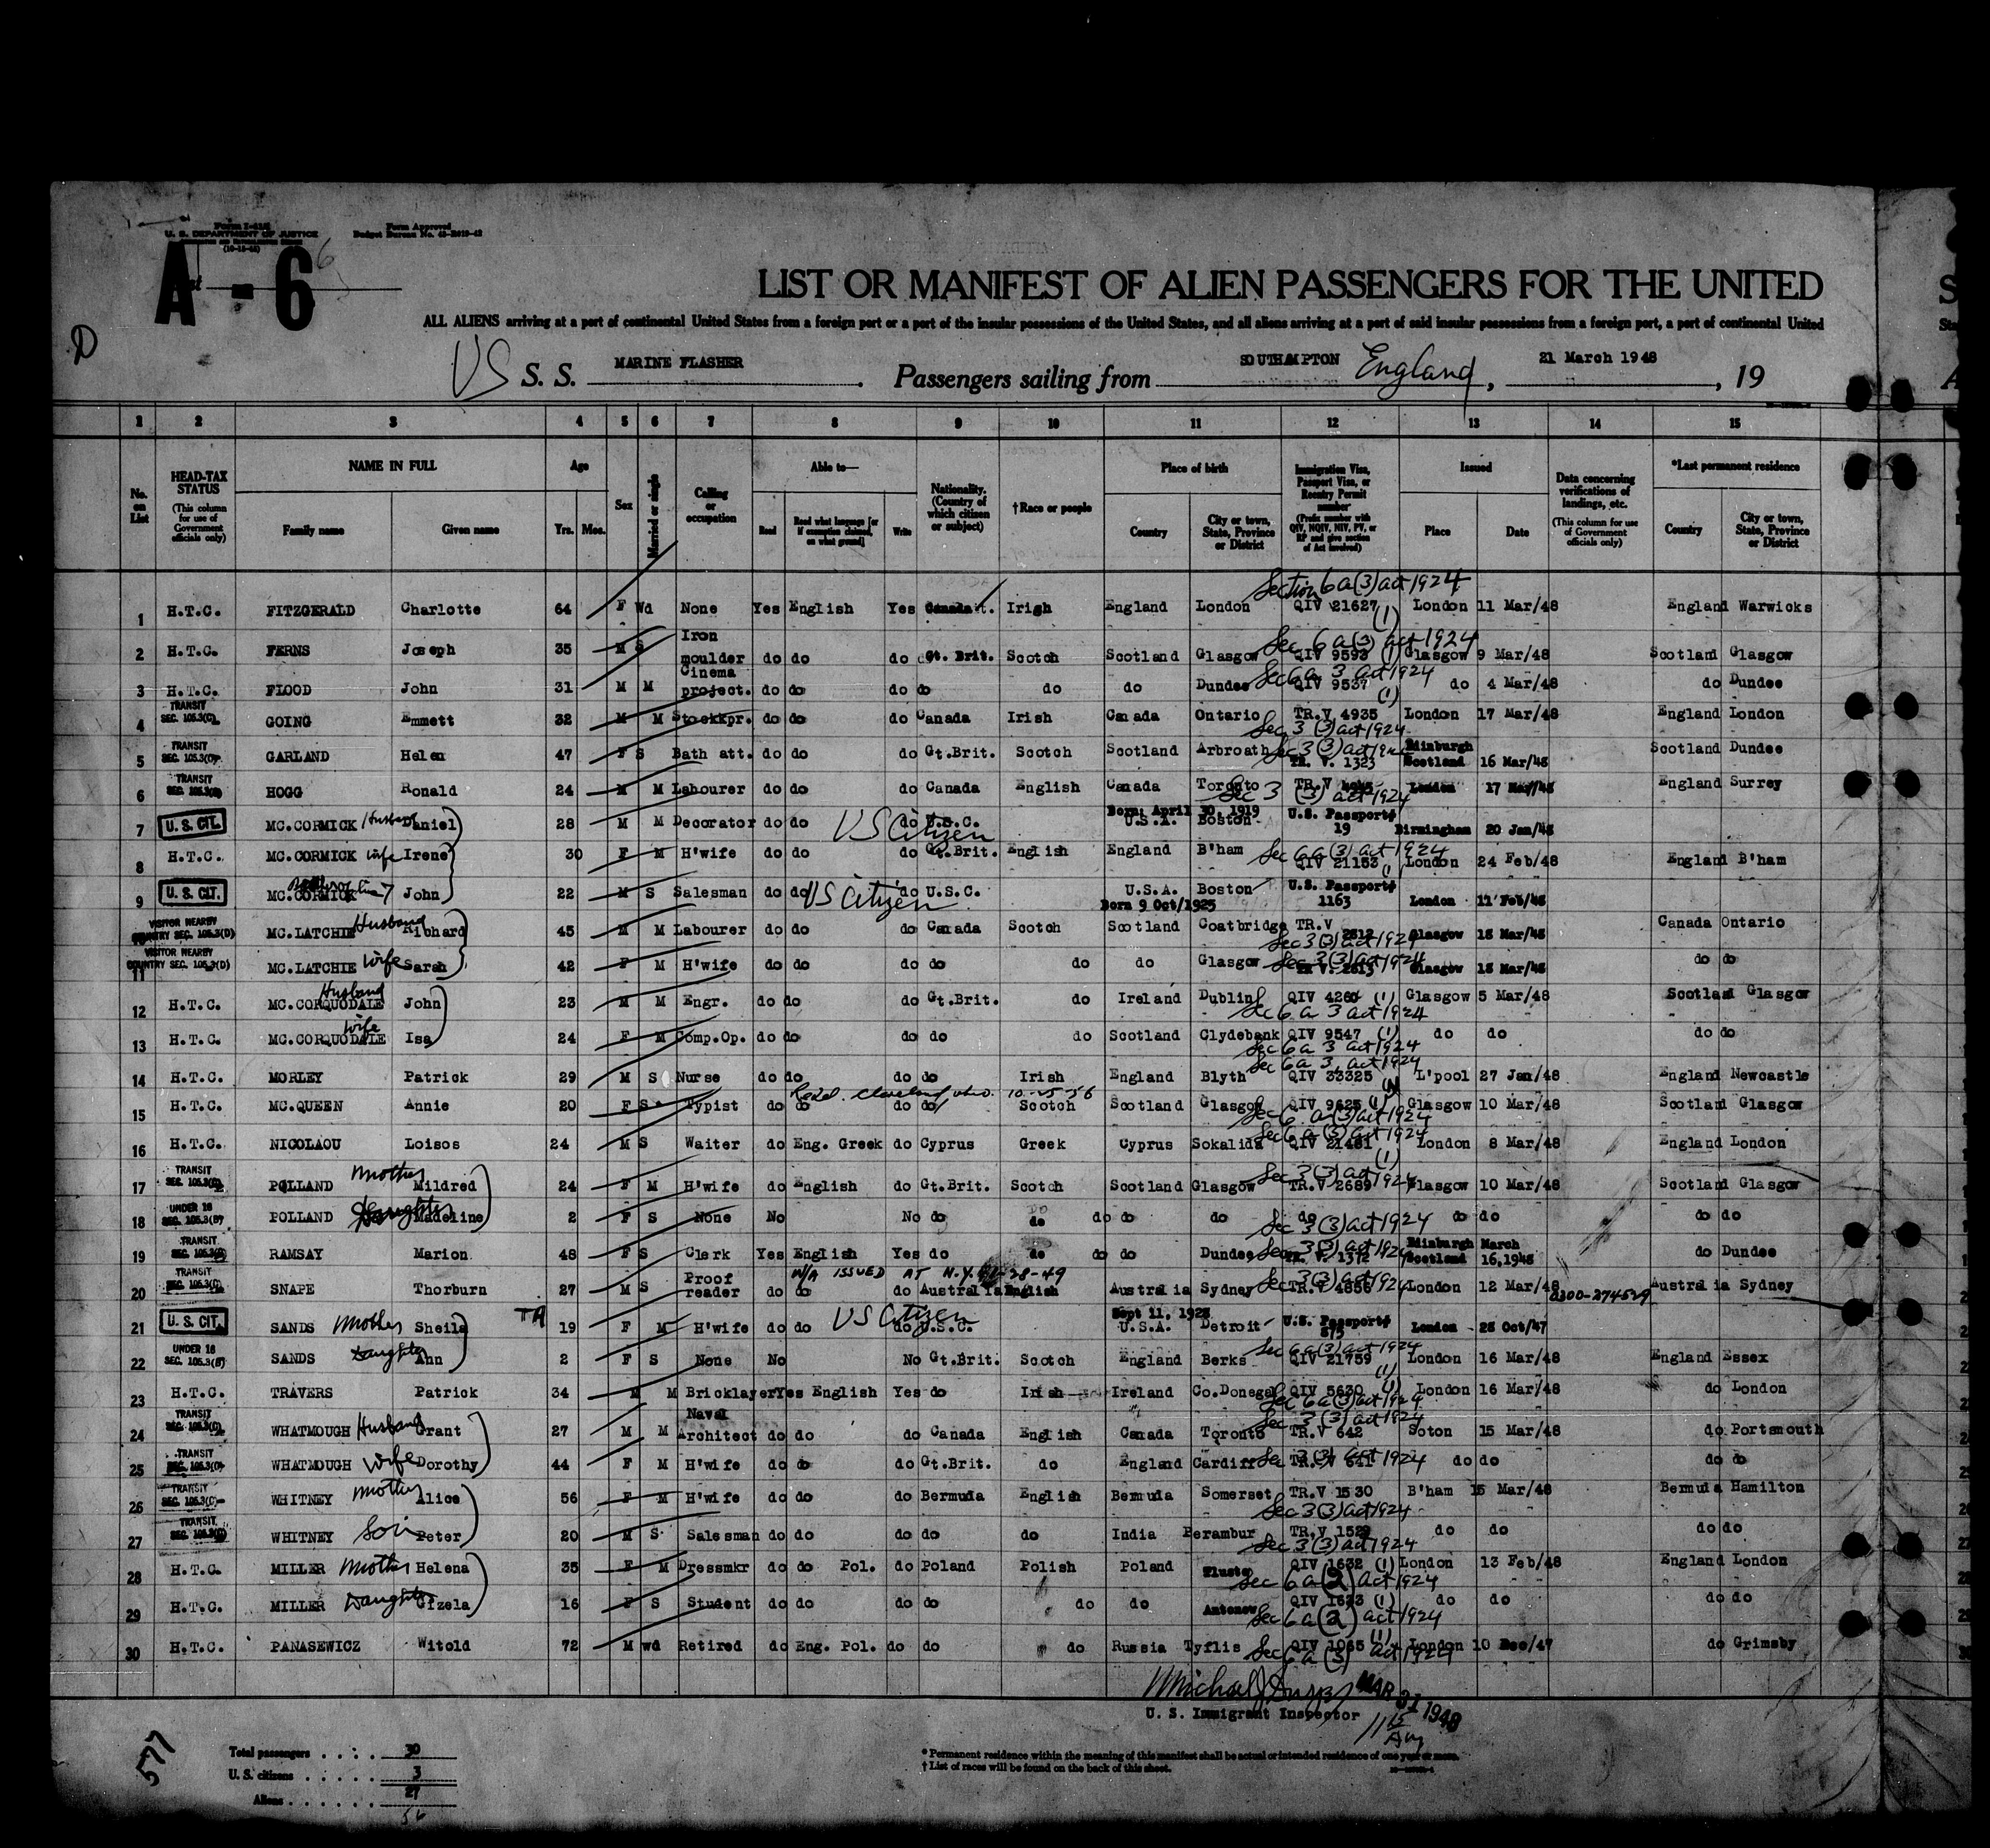 Form I-415
U. S. DEPARTMENT OF JUSTICE
Form Approved
A - 6
D
LIST OR MANIFEST OF ALIEN PASSENGERS FOR THE UNITED
ALL ALIENS arriving at a port of continental United States from a foreign port or a port of the insular possessions of the United States, and all aliens arriving at a port of said insular possessions from a foreign port, a port of continental United
US S. S. MARINE FLASHER. Passengers sailing from SOUTHAMPTON England, 21 March 1948, 19
1 2 3 4 5 6 7 8 9 10 11 12 13 14 15
No. on List HEAD-TAX STATUS (This column for use of Government officials only) NAME IN FULL Family name Given name Age Yrs. Mos. Sex Married or single Calling or occupation Able to— Read Read what language [or if exemption claimed, on what ground] Write Nationality. (Country of which citizen or subject) †Race or people Place of birth Country City or town, State, Province or District Immigration Visa, Passport Visa, or Reentry Permit number (Prefix number with QIV, NQIV, NIV, PV, or RP and give section of Act involved) Issued Place Date Data concerning verifications of landings, etc. (This column for use of Government officials only) *Last permanent residence Country City or town, State, Province or District
Section 6a(3) act 1924
1 H.T.C. FITZGERALD Charlotte 64 F Wd None Yes English Yes Irish England London QIV 21627 (1) London 11 Mar/48 England Warwicks
Sec 6a(3) act 1924
2 H.T.C. FERNS Joseph 35 M S Iron moulder do do do Gt. Brit. Scotch Scotland Glasgow QIV 9593 Glasgow 9 Mar/48 Scotland Glasgow
Sec 6a 3 act 1924
3 H.T.C. FLOOD John 31 M M Cinema project. do do do do do do Dundee QIV 9537 (1) do 4 Mar/48 do Dundee
4 TRANSIT SEC. 105.3(C) GOING Emmett 32 M M Stockkpr. do do do Canada Irish Canada Ontario TR.V 4935 London 17 Mar/48 England London
Sec 3 (3) act 1924
5 TRANSIT SEC. 105.3(C) GARLAND Helen 47 F S Bath att. do do do Gt.Brit. Scotch Scotland Arbroath Sec 3(3) act 1924 TR. V. 1323 Edinburgh Scotland 16 Mar/48 Scotland Dundee
6 TRANSIT HOGG Ronald 24 M M Labourer do do do Canada English Canada Toronto TR.V London 17 Mar/48 England Surrey
Sec 3 (3) act 1924
7 U. S. CIT. MC.CORMICK Husband Daniel 28 M M Decorator do do US Citizen do U.S.C. Born: April 30, 1919 U.S.A. Boston U.S. Passport# 19 Birmingham 20 Jan/48
8 H.T.C. MC.CORMICK wife Irene 30 F M H'wife do do do Gt.Brit. English England B'ham Sec 6a(3) act 1924 QIV 21153 London 24 Feb/48 England B'ham
9 U. S. CIT. MC.CORMICK John 22 M S Salesman do do US Citizen do U.S.C. U.S.A. Boston Born 9 Oct/1925 U.S. Passport# 1163 London 11 Feb/48
10 VISITOR NEARBY COUNTRY SEC. 105.3(D) MC.LATCHIE Husband Richard 45 M M Labourer do do do Canada Scotch Scotland Coatbridge TR.V 2812 Glasgow 15 Mar/48 Canada Ontario
Sec 3(3) act 1924
11 VISITOR NEARBY COUNTRY SEC. 105.3(D) MC.LATCHIE wife Sarah 42 F M H'wife do do do do do do Glasgow Sec 3(3) act 1924 TR V. 2813 Glasgow 15 Mar/48 do do
12 H.T.C. MC.CORQUODALE Husband John 23 M M Engr. do do do Gt.Brit. do Ireland Dublin QIV 4260 (1) Glasgow 5 Mar/48 Scotland Glasgow
Sec 6a 3 act 1924
13 H.T.C. MC.CORQUODALE wife Isa 24 F M Comp.Op. do do do do do Scotland Clydebank QIV 9547 (1) do do do do
Sec 6a 3 act 1924
Sec 6a 3, act 1924
14 H.T.C. MORLEY Patrick 29 M S Nurse do do do do Irish England Blyth QIV 33325 L'pool 27 Jan/48 England Newcastle
15 H.T.C. MC.QUEEN Annie 20 F S Typist do do do do Scotch Scotland Glasgow QIV 9625 (1) Glasgow 10 Mar/48 Scotland Glasgow
Sec 6 a(3) act 1924
Sec 6a (3) act 1924
16 H.T.C. NICOLAOU Loisos 24 M S Waiter do Eng. Greek do Cyprus Greek Cyprus Sokalida QIV 21481 (1) London 8 Mar/48 England London
17 TRANSIT POLLAND mother Mildred 24 F M H'wife do English do Gt.Brit. Scotch Scotland Glasgow Sec 3(3) act 1924 TR.V 2689 Glasgow 10 Mar/48 Scotland Glasgow
18 UNDER 16 SEC. 105.3(B) POLLAND Daughter Madeline 2 F S None No No do do do do do do do do do do
Sec 3(3) act 1924
19 TRANSIT RAMSAY Marion 48 F S Clerk Yes English Yes do do do do Dundee Sec 3(3) act 1924 TR. V. 1372 Edinburgh Scotland March 16,1948 do Dundee
W/A ISSUED AT N.Y.
20 TRANSIT SNAPE Thorburn 27 M S Proof reader do do do Australia English Australia Sydney Sec 3(3) act 1924 TR.V 4856 London 12 Mar/48 0300-274529 Australia Sydney
21 U. S. CIT. SANDS mother Sheila 19 F M H'wife do do US Citizen do U.S.C. Sept 11, 1928 U.S.A. Detroit U.S. Passport# 875 London 25 Oct/47
22 UNDER 16 SEC. 105.3(B) SANDS Daughter Ann 2 F S None No No Gt.Brit. Scotch England Berks Sec 6a(3) act 1924 QIV 21759 (1) London 16 Mar/48 England Essex
23 H.T.C. TRAVERS Patrick 34 M M Bricklayer Yes English Yes do Irish Ireland Co.Donegal QIV 5630 (1) London 16 Mar/48 do London
Sec 6a(3) act 1924
24 TRANSIT SEC. 105.3(C) WHATMOUGH Husband Grant 27 M M Naval Architect do do do Canada English Canada Toronto Sec 3(3) act 1924 TR.V 642 Soton 15 Mar/48 do Portsmouth
25 TRANSIT SEC. 105.3(C) WHATMOUGH wife Dorothy 44 F M H'wife do do do Gt.Brit. do England Cardiff Sec 3(3) act 1924 do do do do
26 TRANSIT SEC. 105.3(C) WHITNEY mother Alice 56 F M H'wife do do do Bermuda English Bermuda Somerset TR.V 1530 B'ham 15 Mar/48 Bermuda Hamilton
Sec 3(3) act 1924
27 TRANSIT WHITNEY Son Peter 20 M S Salesman do do do do do India Perambur TR.V 1529 do do do do
Sec 3(3) act 1924
28 H.T.C. MILLER mother Helena 35 F M Dressmkr do do Pol. do Poland Polish Poland Tluste QIV 1632 (1) London 13 Feb/48 England London
Sec 6a(2) act 1924
29 H.T.C. MILLER Daughter Gizela 16 F S Student do do do do do do Antonow QIV 1633 (1) do do do do
Sec 6a(2) act 1924
30 H.T.C. PANASEWICZ Witold 72 M wd Retired do Eng. Pol. do do do Russia Tyflis QIV 1065 (1) London 10 Dec/47 do Grimsby
Sec 6a(3) act 1924
MAR 31 1948
U. S. Immigrant Inspector
11 15 AM
577
Total passengers . . . . 30
U. S. citizens . . . . . 3
Aliens . . . . . . 27
* Permanent residence within the meaning of this manifest shall be actual or intended residence of one year or more.
† List of races will be found on the back of this sheet.